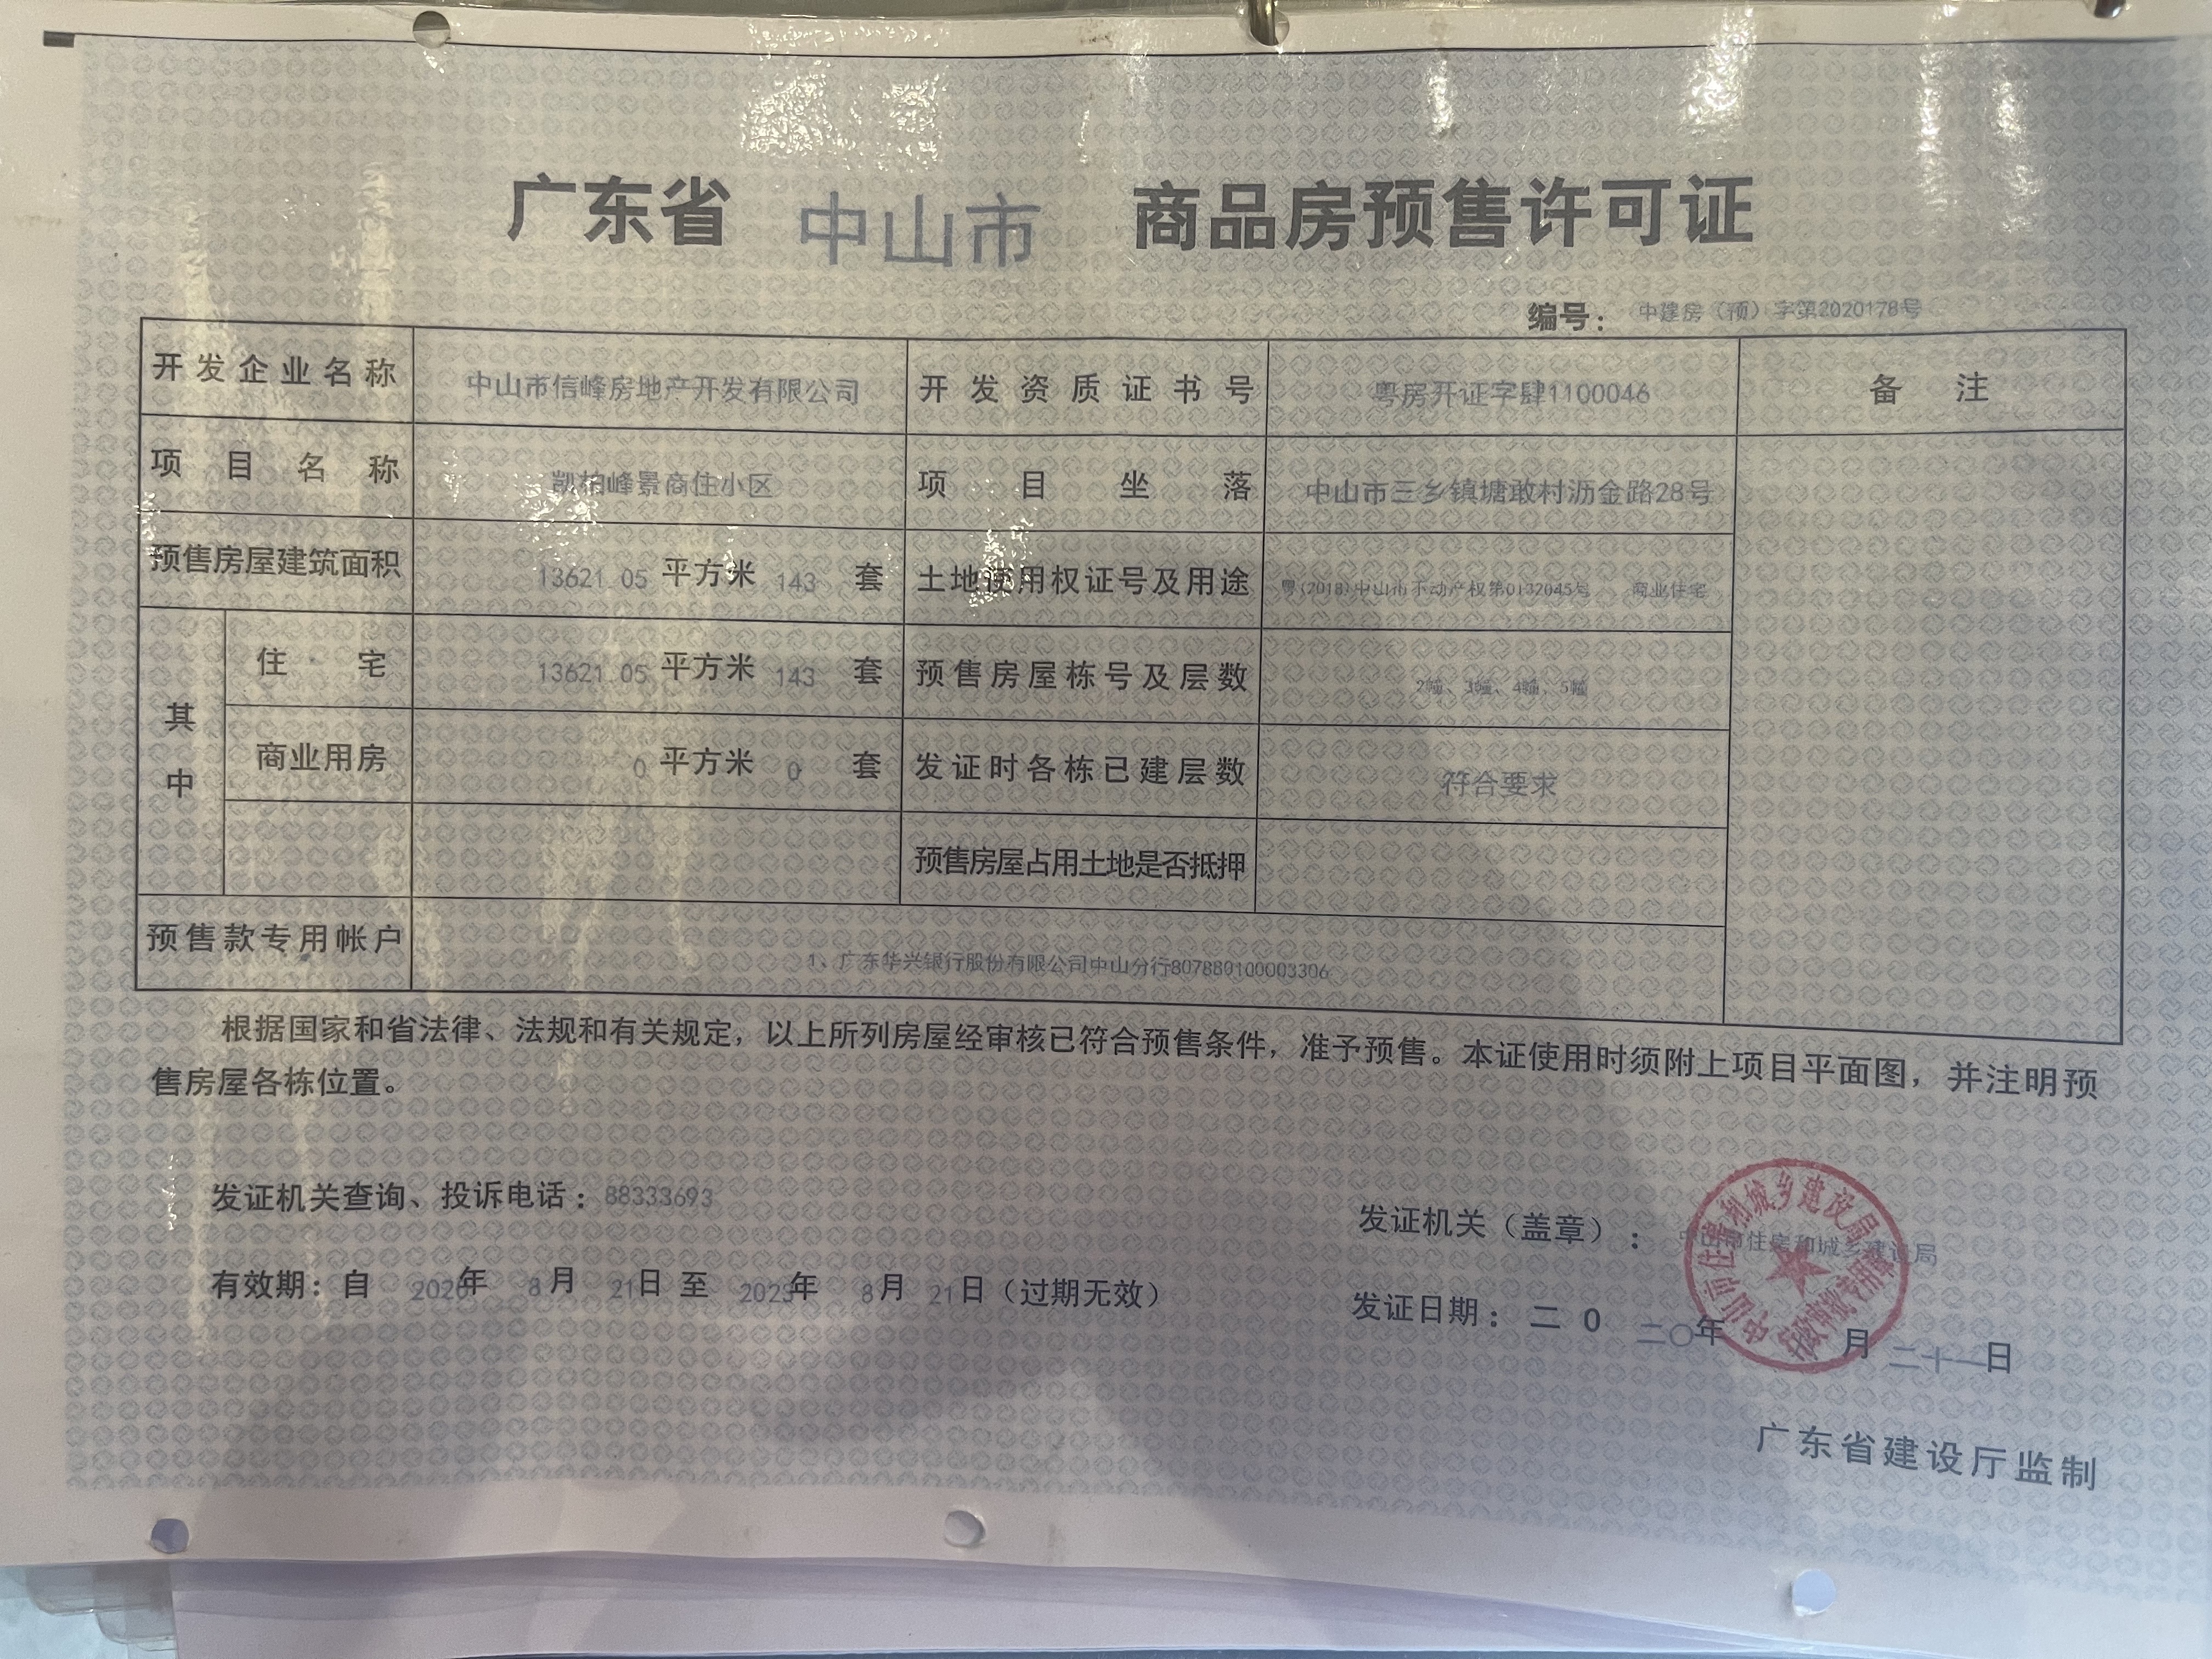 广东省 中山市 商品房预售许可证
编号： 中建房（预）字第2020178号
开发企业名称 中山市信峰房地产开发有限公司 开发资质证书号 粤房开证字肆1100046 备 注
项目名称 凯柏峰景商住小区 项目坐落 中山市三乡镇塘敢村沥金路28号
预售房屋建筑面积 13621.05 平方米 143 套 土地使用权证号及用途 粤(2018)中山市不动产权第0132045号 商业住宅
其中 住宅 13621.05 平方米 143 套 预售房屋栋号及层数 2幢、3幢、4幢、5幢
商业用房 0 平方米 0 套 发证时各栋已建层数 符合要求
预售房屋占用土地是否抵押
预售款专用帐户 1、广东华兴银行股份有限公司中山分行807880100003306
根据国家和省法律、法规和有关规定，以上所列房屋经审核已符合预售条件，准予预售。本证使用时须附上项目平面图，并注明预
售房屋各栋位置。
发证机关查询、投诉电话：88333693
发证机关（盖章）： 中山市住房和城乡建设局
中山市住房和城乡建设局
行政审批专用章
有效期：自 2020年 8月 21日 至 2023年 8月 21日（过期无效）
发证日期：二0 二〇年 月 二十一日
广东省建设厅监制